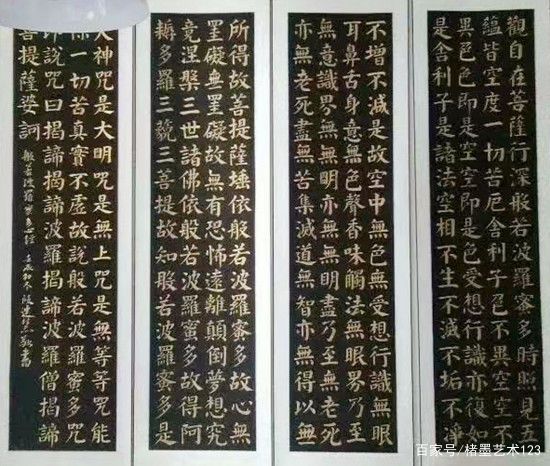 觀自在菩薩行深般若波羅蜜多時照見五
蘊皆空度一切苦厄舍利子色不異空空不
異色色即是空空即是色受想行識亦復如
是舍利子是諸法空相不生不滅不垢不淨
不增不減是故空中無色無受想行識無眼
耳鼻舌身意無色聲香味觸法無眼界乃至
無意識界無無明亦無無明盡乃至無老死
亦無老死盡無苦集滅道無智亦無得以無
所得故菩提薩埵依般若波羅蜜多故心無
罣礙無罣礙故無有恐怖遠離顛倒夢想究
竟涅槃三世諸佛依般若波羅蜜多故得阿
耨多羅三藐三菩提故知般若波羅蜜多是
大神咒是大明咒是無上咒是無等等咒能
除一切苦真實不虛故說般若波羅蜜多咒
即說咒曰揭諦揭諦波羅揭諦波羅僧揭諦
菩提薩婆訶
般若波羅蜜多心經 敬書
百家号/楮墨艺术123